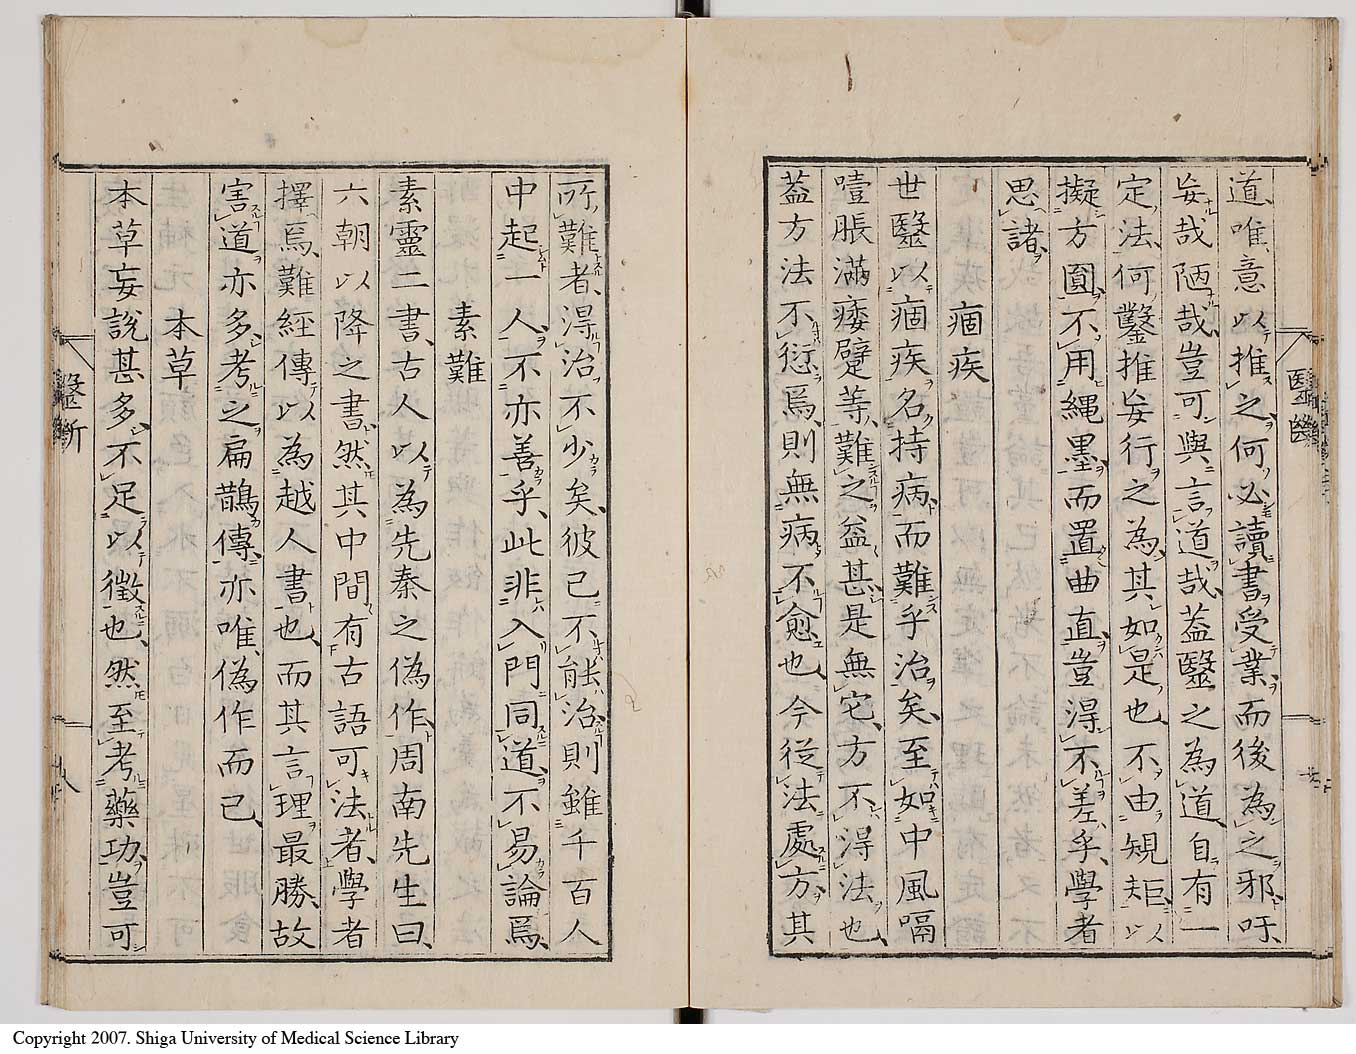 道唯意以推之何必讀書受業而後為之邪吁
妄哉陋哉豈可與言道哉葢醫之為道自有一
定法何鑿推妄行之為其如是也不由規矩以
擬方圓不用縄墨而置曲直豈得不差乎學者
思諸
痼疾
世醫以痼疾名持病而難乎治矣至如中風嗝
噎脹滿痿躄等難之益甚是無它方不得法也
葢方法不愆焉則無病不愈也今從法處方其
所難者得治不少矣彼已不能治則雖千百人
中起一人不亦善乎此非入門同道不易論焉
素難
素靈二書古人以為先秦之偽作周南先生曰
六朝以降之書然其中間有古語可法者學者
擇焉難經傳以為越人書也而其言理最勝故
害道亦多考之扁鵲傳亦唯偽作而已
本草
本草妄說甚多不足以徵也然至考藥功豈可
醫斷
十八
Copyright 2007. Shiga University of Medical Science Library